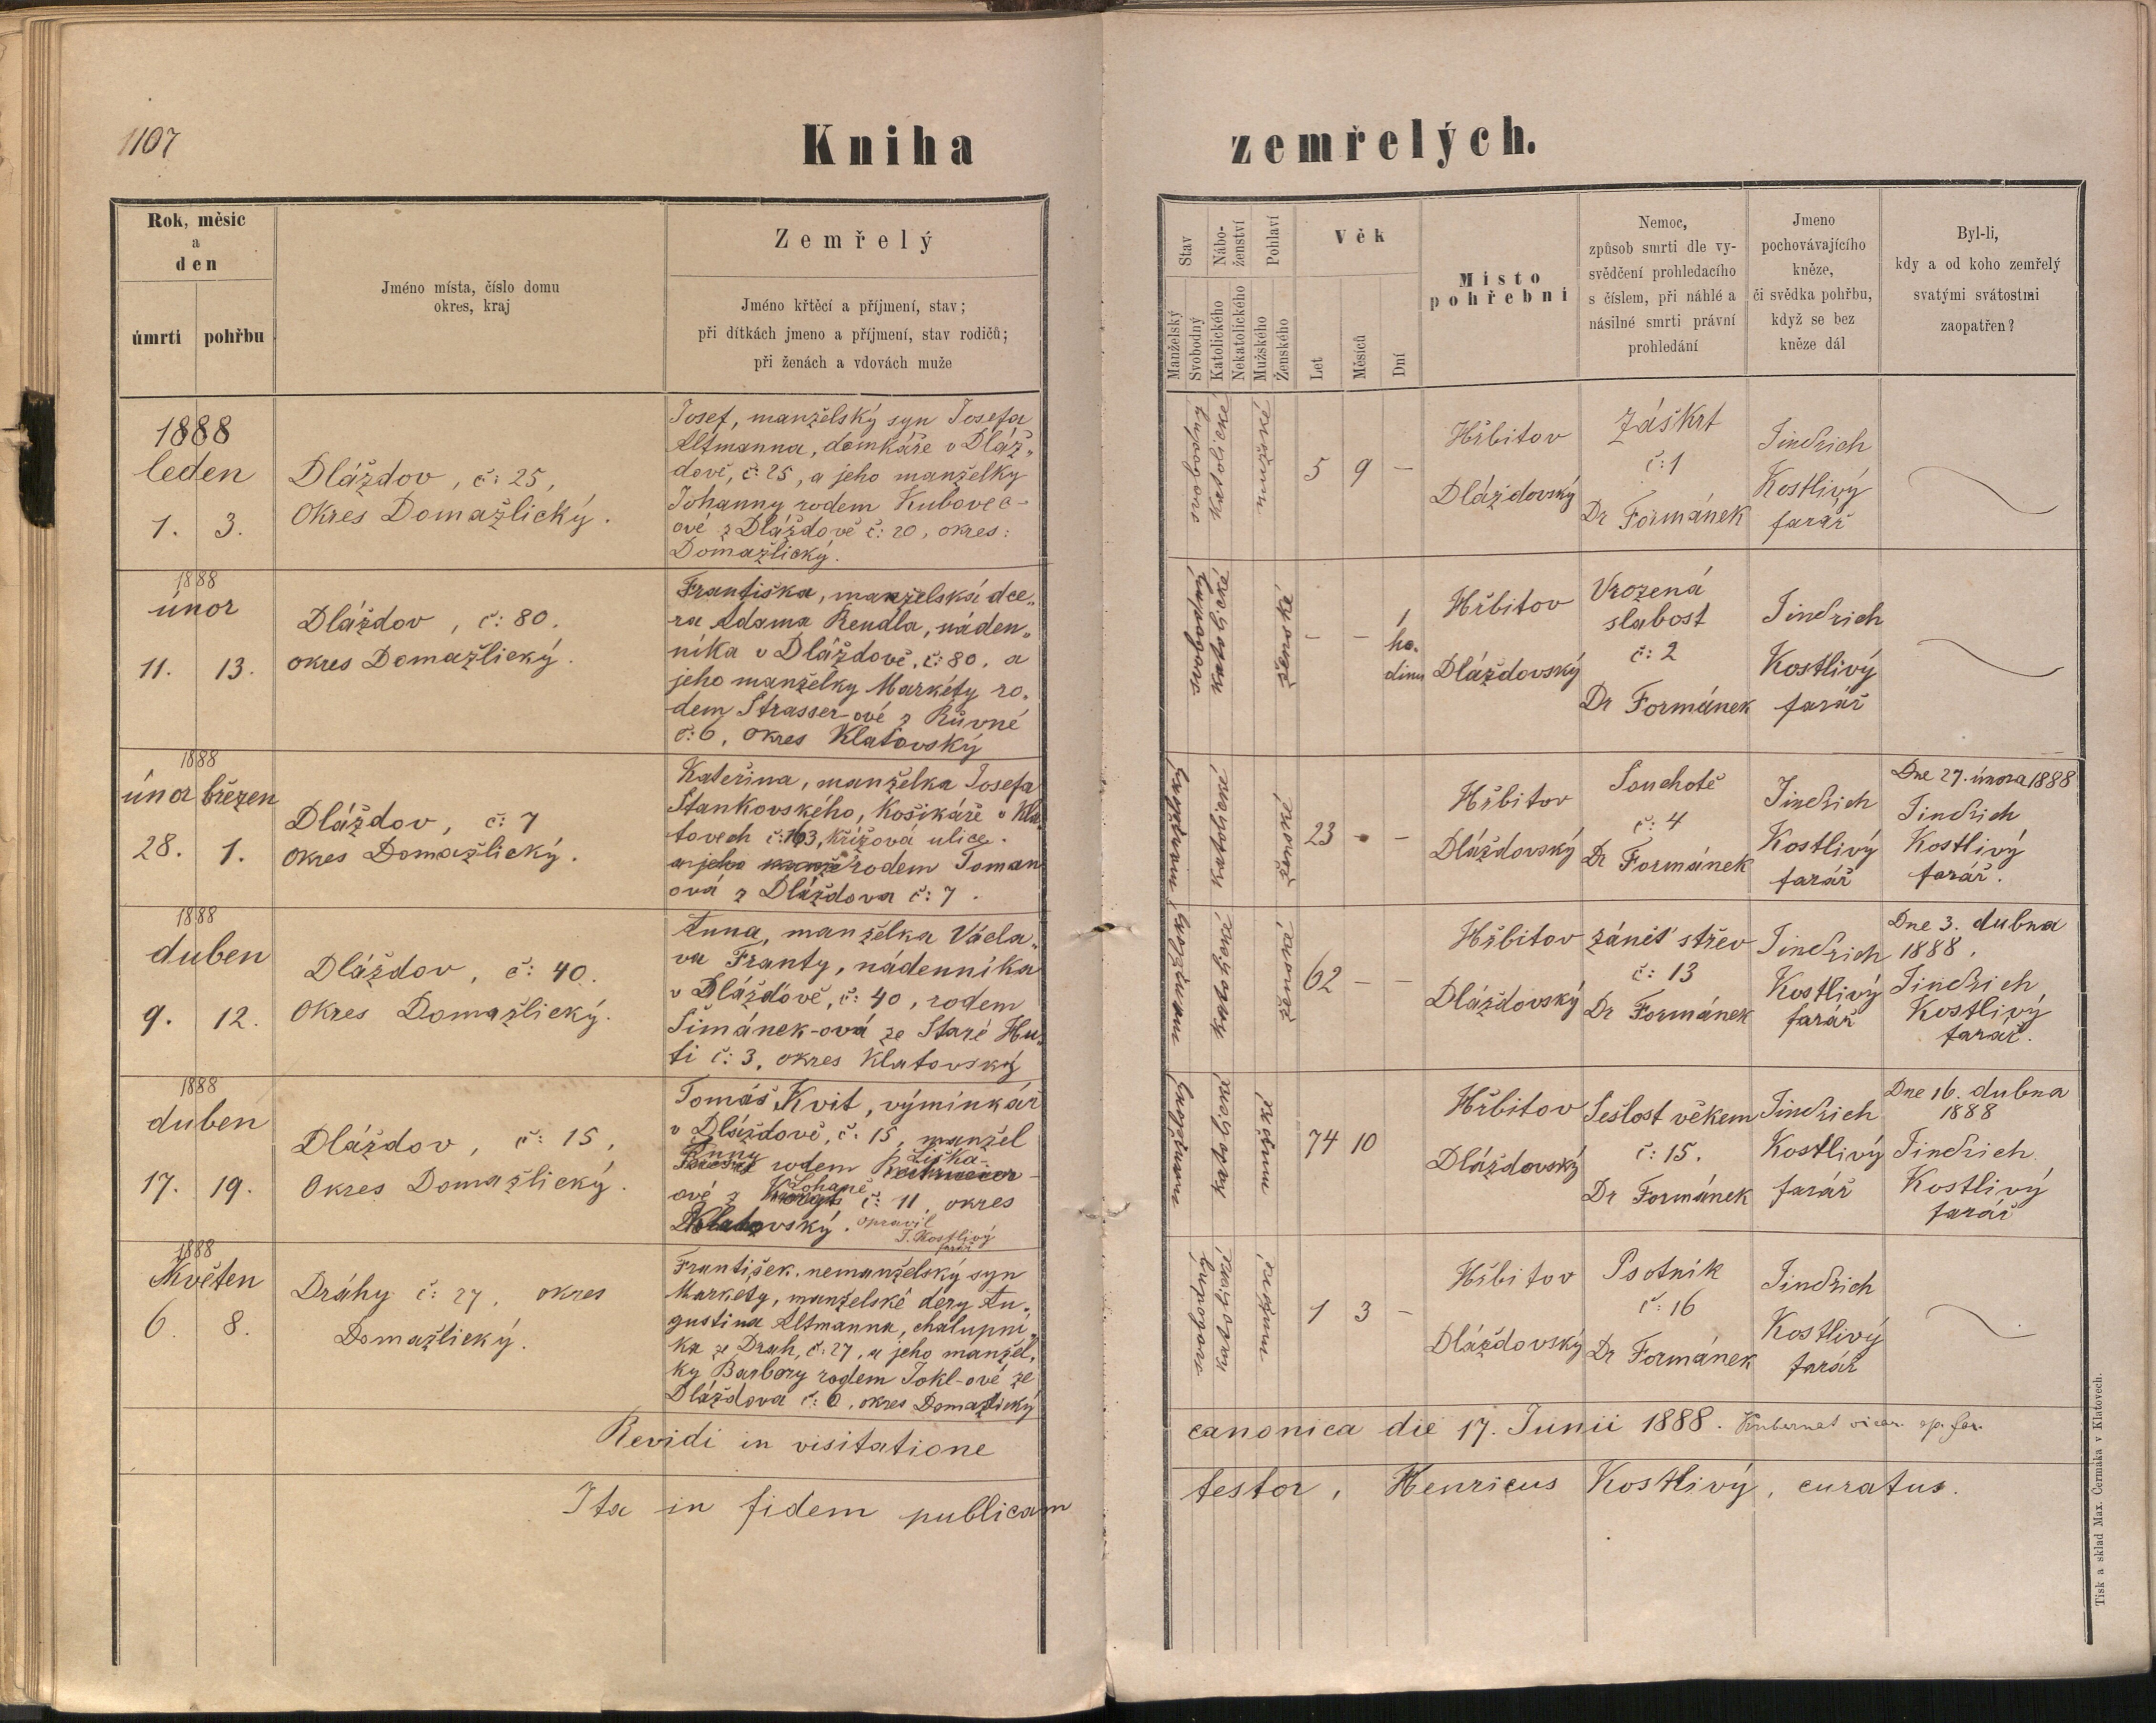 1107
Kniha zemřelých.
Rok, měsíc
a
den
úmrtí pohřbu
Jméno místa, číslo domu
okres, kraj
Zemřelý
Jméno křtěcí a příjmení, stav;
při dítkách jmeno a příjmení, stav rodičů;
při ženách a vdovách muže
Stav
Manželský
Svobodný
Nábo-
ženství
Katolického
Nekatolického
Pohlaví
Mužského
Ženského
Věk
Let
Měsíců
Dní
Místo
pohřební
Nemoc,
způsob smrti dle vy-
svědčení prohledacího
s číslem, při náhlé a
násilné smrti právní
prohledání
Jmeno
pochovávajícího
kněze,
či svědka pohřbu,
když se bez
kněze dál
Byl-li,
kdy a od koho zemřelý
svatými svátostmi
zaopatřen?
1888
leden
1. 3.
Dláždov, č: 25,
Okres Domažlický.
Josef, manželský syn Josefa
Altmanna, domkáře v Dláž„
dově, č: 25, a jeho manželky
Johanny rodem Kubovec-
ové z Dláždově č: 20, okres:
Domažlický.
svobodný
Katolické
mužské
5 9 –
Hřbitov
Dláždovský
Záškrt
č: 1
Dr Formánek
Jindřich
Kostlivý
farář
1888
únor
11. 13.
Dláždov, č: 80.
okres Domažlický.
Františka, manželská dce„
ra Adama Rendla, náden„
níka v Dláždově, č: 80. a
jeho manželky Markéty ro„
dem Strasser-ové z Růvné
č: 6, okres Klatovský
svobodný
Katolické
ženské
– – 1
ho„
dinu
Hřbitov
Dláždovský
Vrozená
slabost
č: 2
Dr Formánek
Jindřich
Kostlivý
farář
1888
únor březen
28. 1.
Dláždov, č: 7
okres Domažlický.
Kateřina, manželka Josefa
Stankovského, Košikáře v Kla„
tovech č: 163, Křížová ulice.
a jeho manže rodem Toman
ová z Dláždova č: 7.
Katolické
ženské
23 – –
Hřbitov
Dláždovský
Souchotě
č: 4
Dr Formánek
Jindřich
Kostlivý
farář
Dne 27. února 1888
Jindřich
Kostlivý
farář.
1888
duben
9. 12.
Dláždov, č: 40.
Okres Domažlický.
Anna, manželka Václa„
va Franty, nádenníka
v Dláždově, č: 40, rodem
Šimánek-ová ze Staré Hu„
ti č: 3, okres Klatovský
Katolické
ženská
62 – –
Hřbitov
Dláždovský
zánět střev
č: 13
Dr Formánek
Jindřich
Kostlivý
farář
Dne 3. dubna
1888.
Jindřich
Kostlivý
farář.
1888
duben
17. 19.
Dláždov, č: 15,
Okres Domažlický.
Tomáš Kvit, výminkář
v Dláždově, č: 15, manžel
Anny rodem Liška-
ové z č: 11, okres
Klatovský. opravil
J. Kostlivý
farář
Katolické
mužské
74 10
Hřbitov
Dláždovský
Sešlost věkem
č: 15.
Dr Formánek
Jindřich
Kostlivý
farář
Dne 16. dubna
1888
Jindřich
Kostlivý
farář
1888
Květen
6. 8.
Dráhy č: 27, okres
Domažlický.
František. nemanželský syn
Markety, manželské dcry Au„
gustina Altmanna, chalupní„
ka ze Drah, č: 27, a jeho manžel„
ky Barbory rodem Jokl-ové ze
Dláždova č: 6, okres Domažlický
svobodný
Katolické
mužské
1 3 –
Hřbitov
Dláždovský
Psotník
č: 16
Dr Formánek
Jindřich
Kostlivý
farář
Revidi in visitatione canonica die 17. Junii 1888.
Ita in fidem publicam testor, Henricus Kostlivý, curatus.
Tisk a sklad Max. Čermáka v Klatovech.